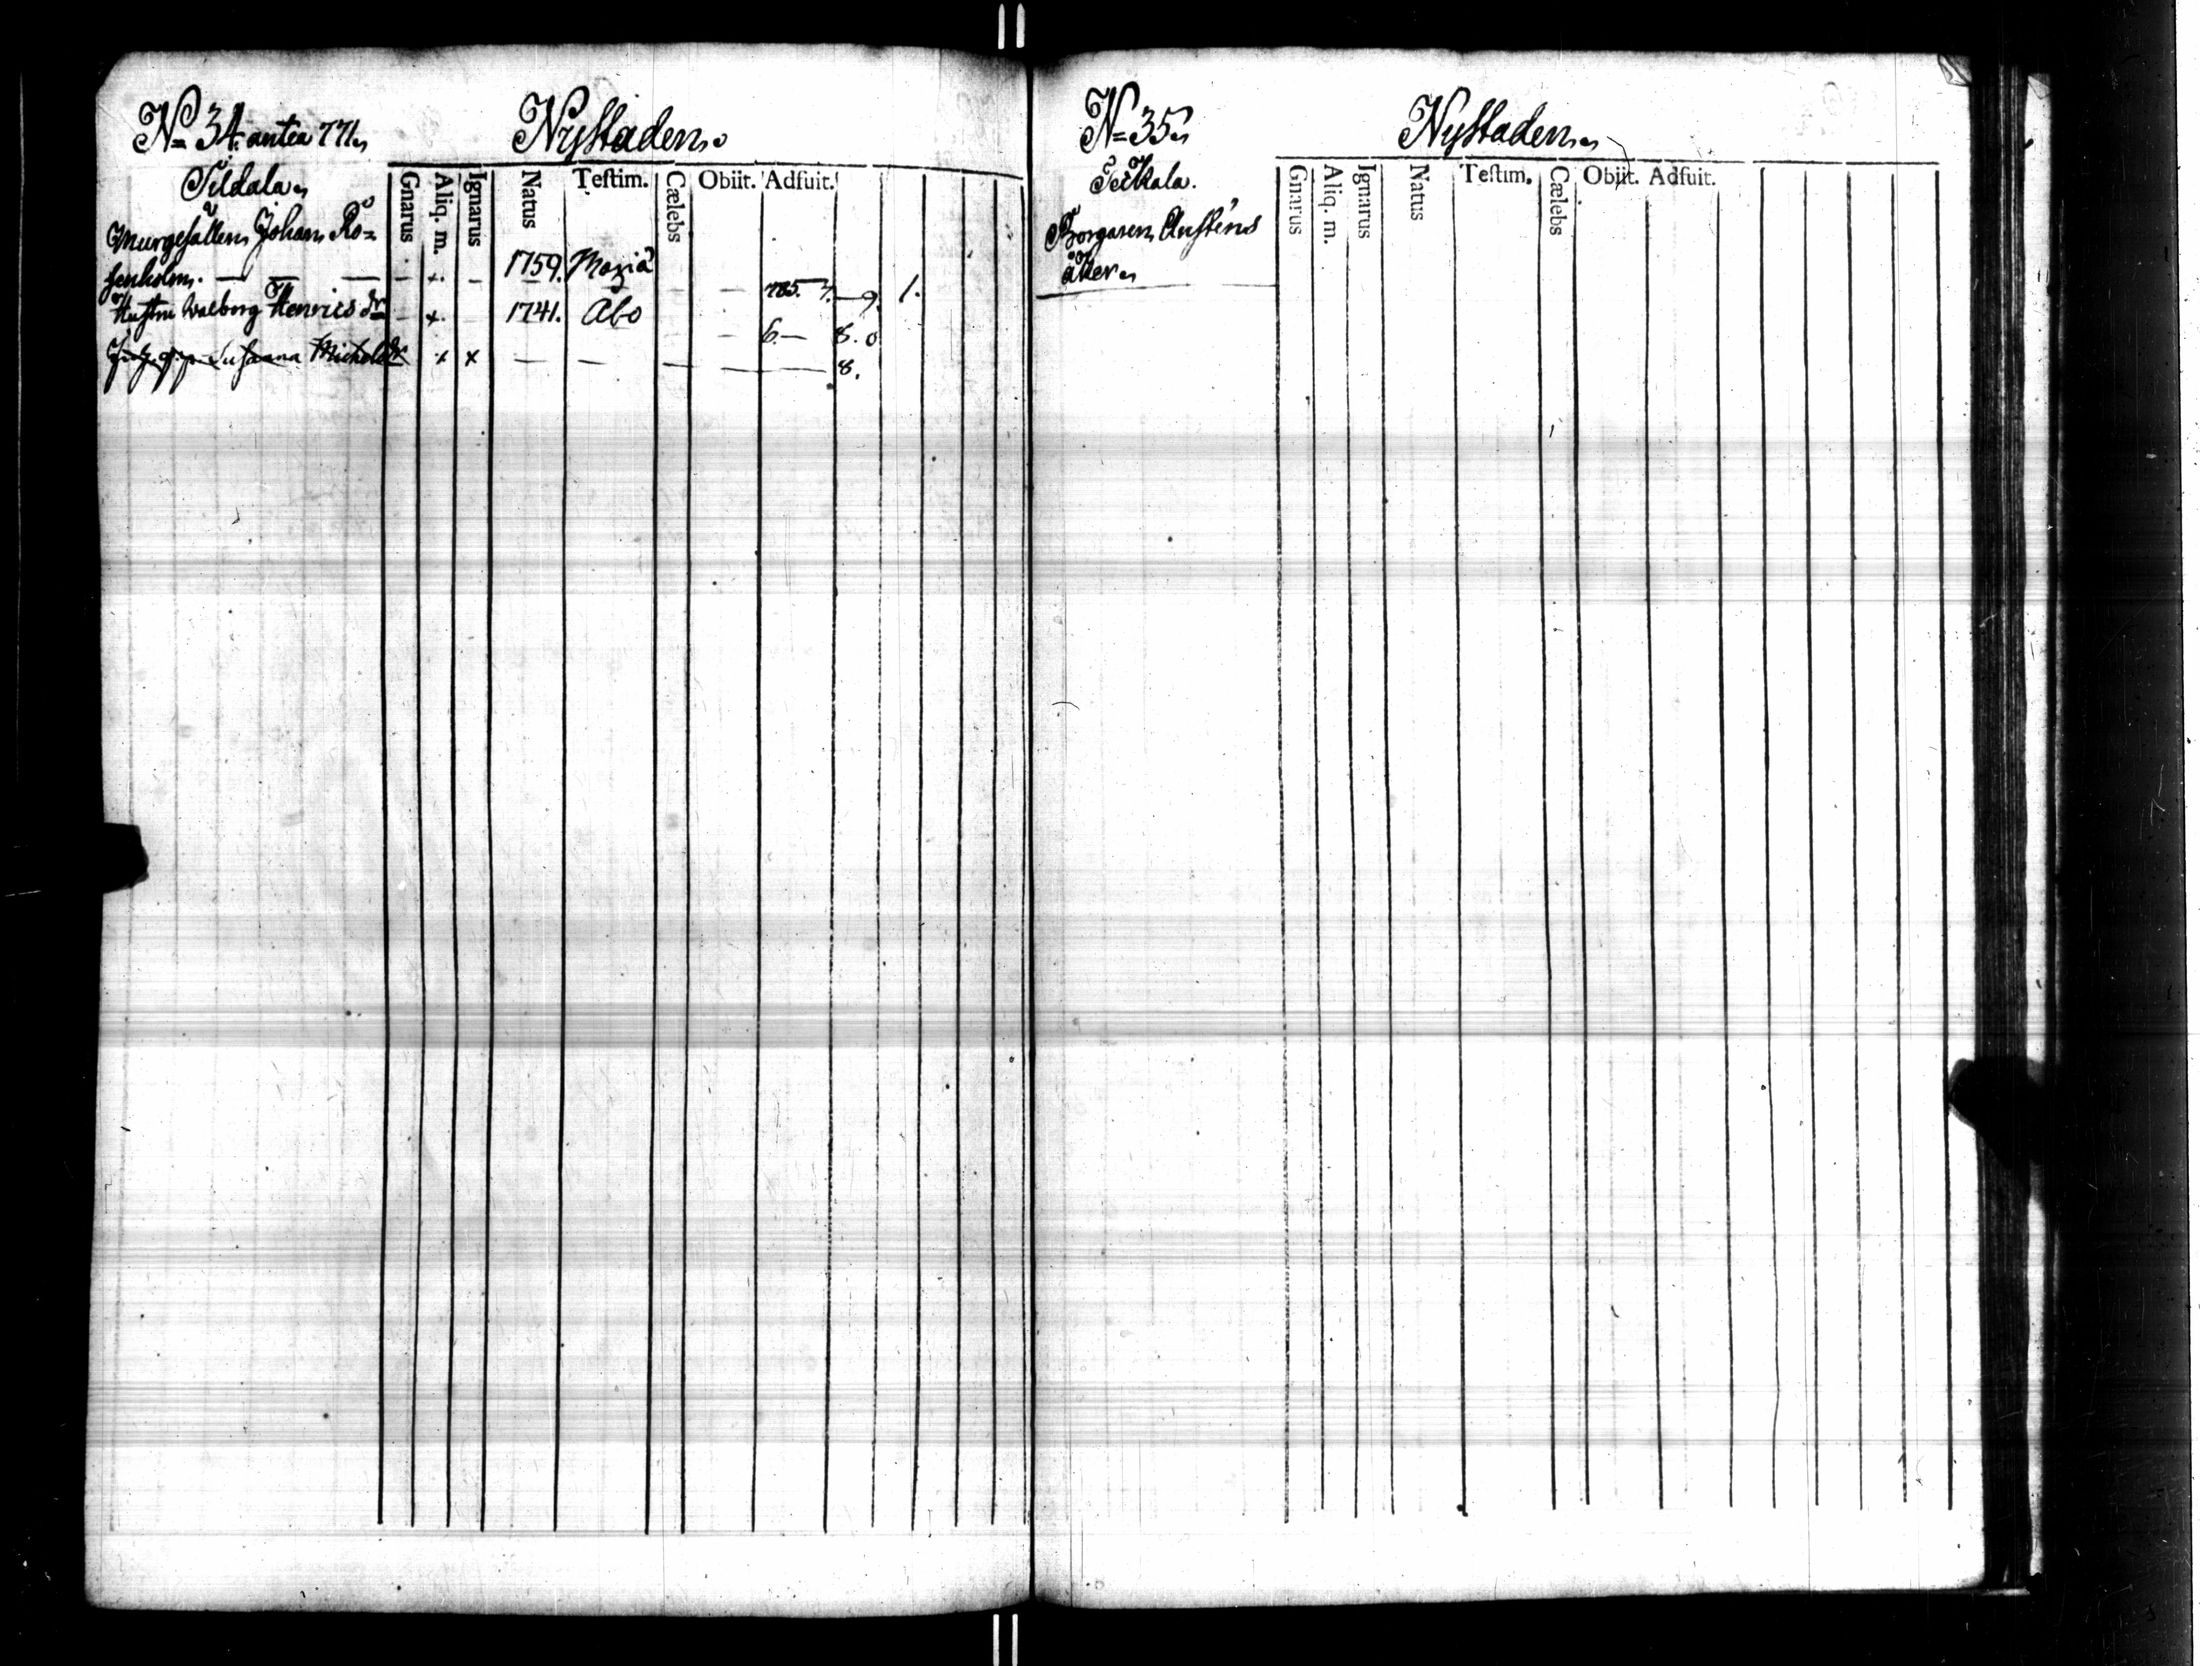 N= 34. antea 771.
Nystaden.
Tildala.
Gnarus Aliq. m. Ignarus Natus Testim. Cælebs Obiit. Adfuit.
Murgesällen Johan Ro=
senholm. — — — — +. — 1759. 785. 7. — 9. 1.
Hustru Walborg Henrics dr — +. 1741. Åbo — 6. — 8. 0
Susanna Michelsdr + x — — — — 8.
N= 35.
Nystaden.
Teikala.
Gnarus Aliq. m. Ignarus Natus Testim. Cælebs Obiit. Adfuit.
Borgaren Austens
åker.